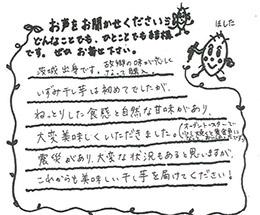 お声をお聞かせください
どんなことでも、ひとことでも結構
です。ぜひ お寄せ下さい。
ほした
茨城出身です。故郷の味が恋しく
なって購入
いずみ干し芋は初めてでしたが、
ねっとりした食感と自然な甘味があり
大変美味しくいただきました。
震災があり、大変な状況もあると思いますが、
これからも美味しい干し芋を届けてください!